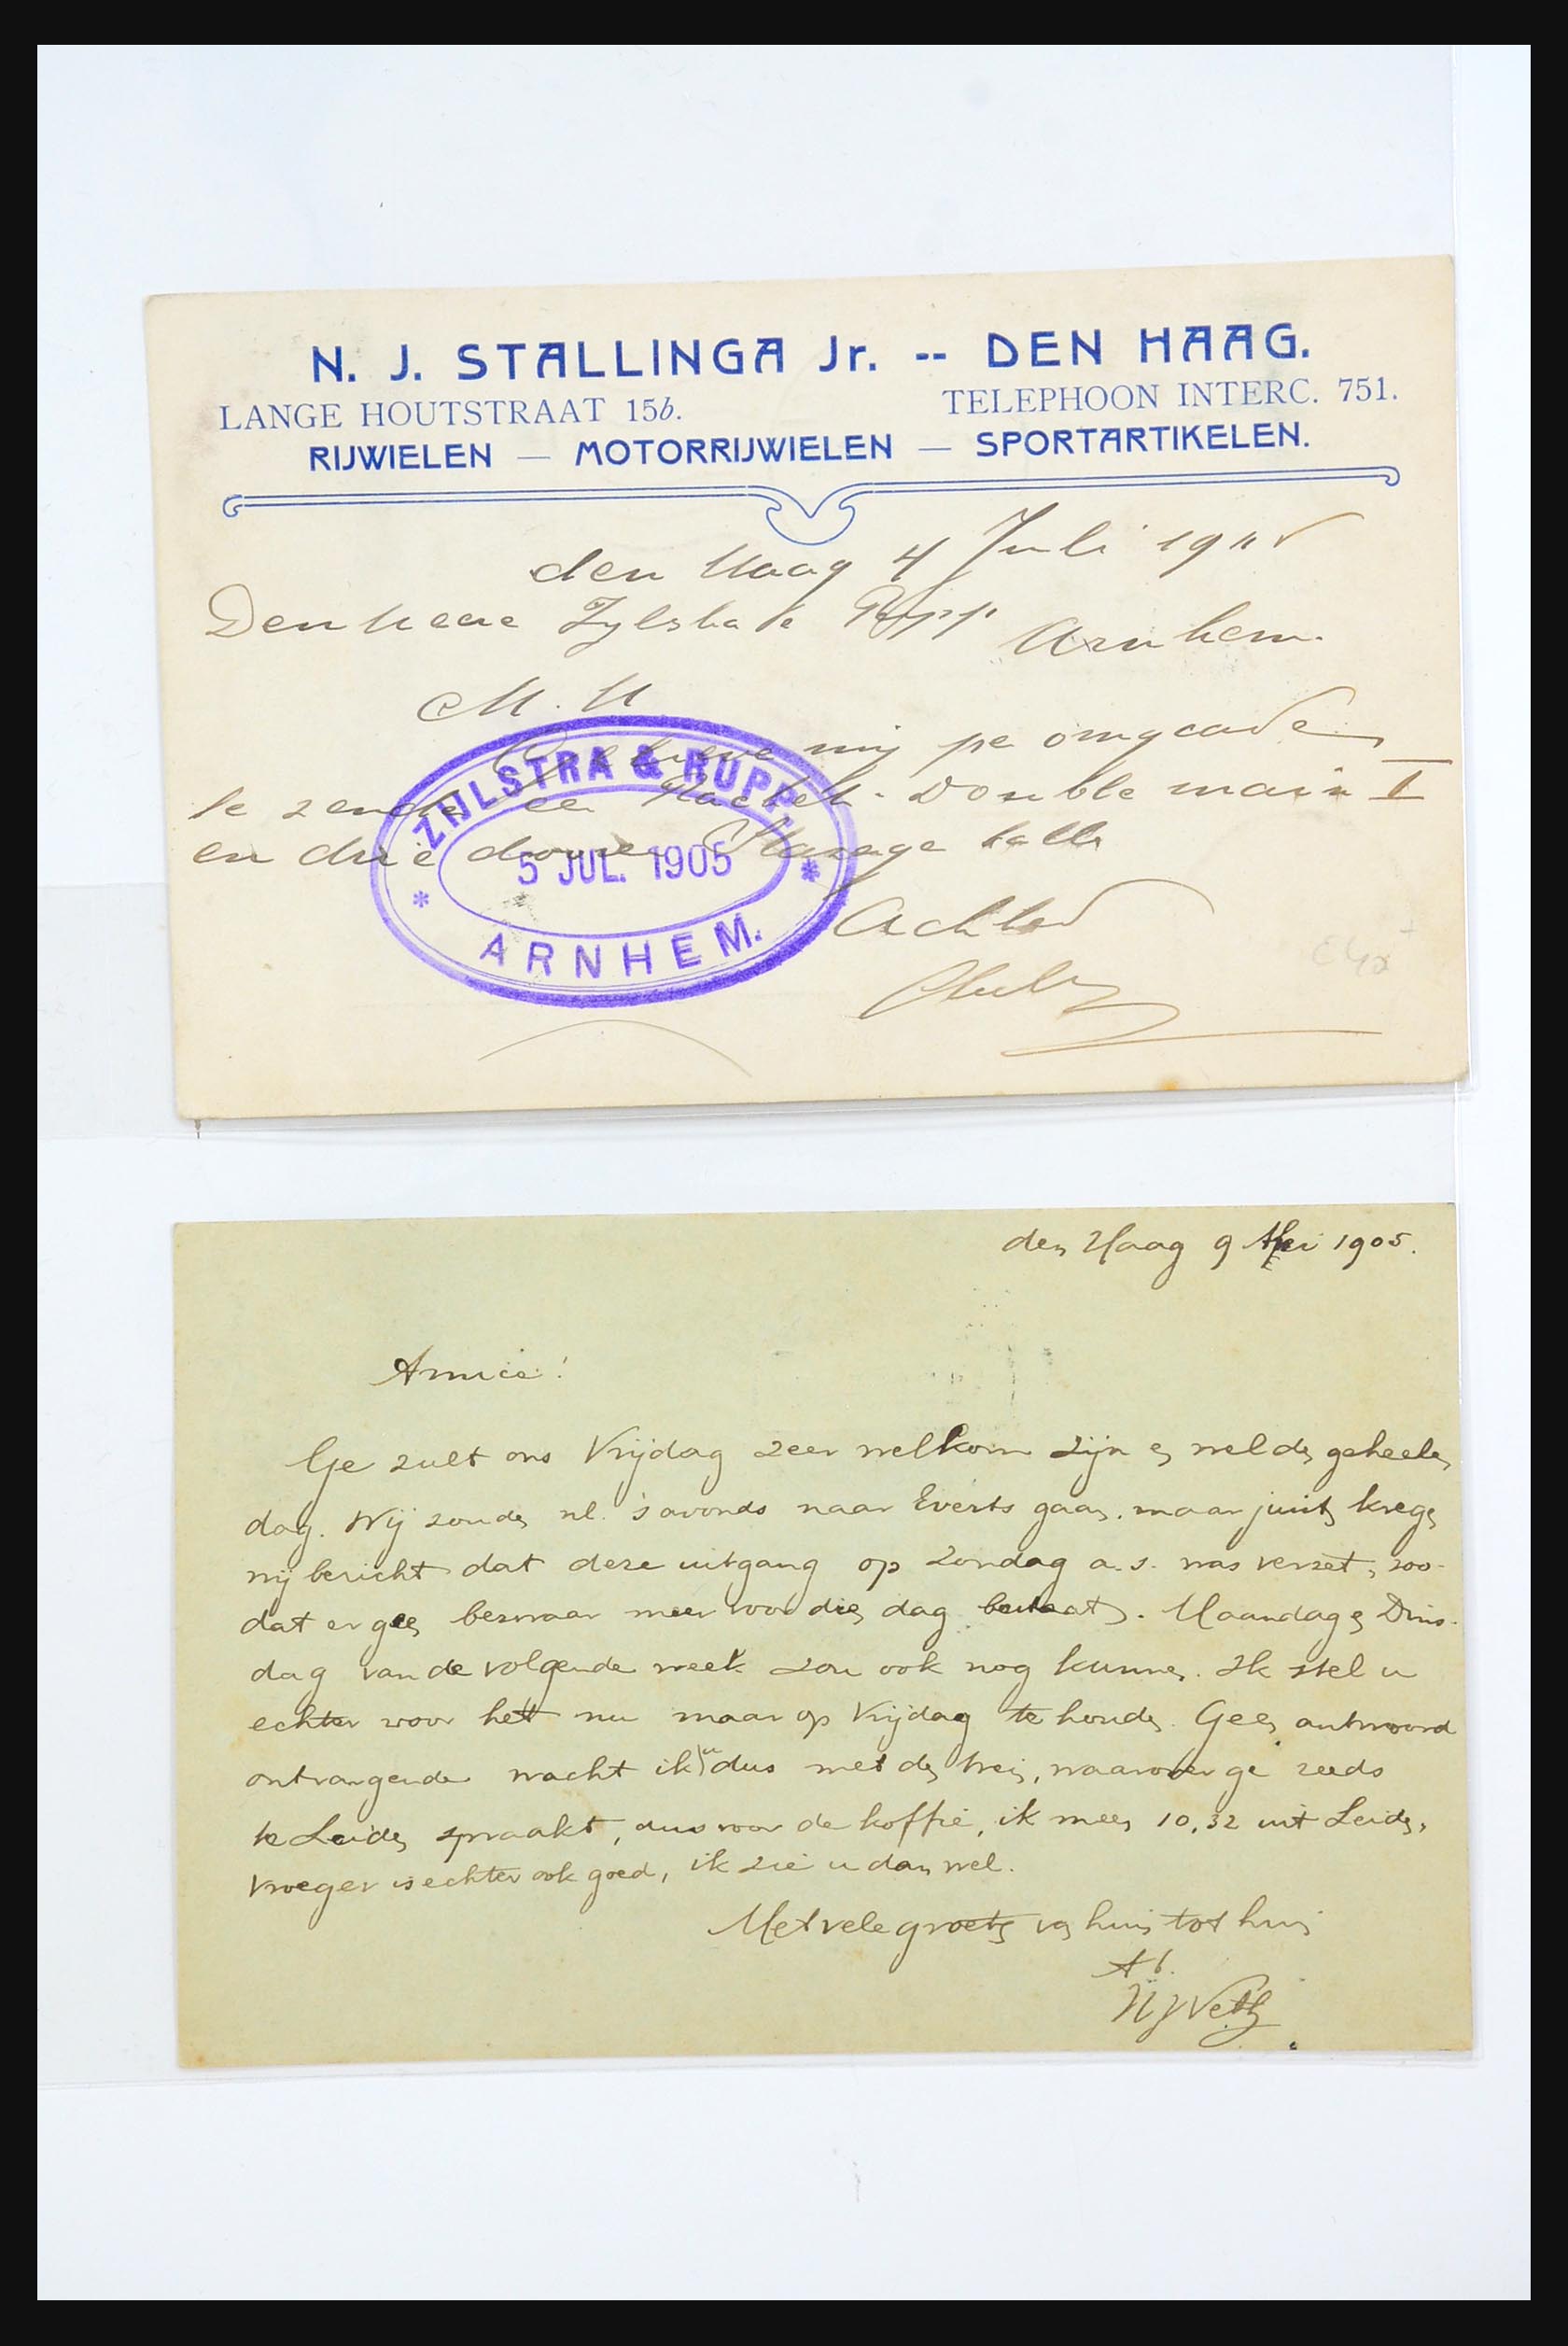 N. J. STALLINGA Jr. -- DEN HAAG.
LANGE HOUTSTRAAT 15b. TELEPHOON INTERC. 751.
RIJWIELEN — MOTORRIJWIELEN — SPORTARTIKELEN.
den Haag 4 Juli 19
Den Heere Zylstra & Rupp Arnhem.
M. H
mij per omgaande
te zenden een Racket. Double main I
en drie dozijn balls
ZIJLSTRA & RUPP
5 JUL. 1905
ARNHEM.
Acht
den Haag 9 Mei 1905.
Amice!
Ge zult ons Vrijdag zeer welkom zijn en wel den geheelen
dag. Wij zouden nl. 's avonds naar Everts gaan, maar juist kregen
wij bericht dat deze uitgang op Zondag a.s. was verzet, zoo-
dat er geen bezwaar meer voor dien dag bestaat. Maandag en Dins-
dag van de volgende week zou ook nog kunnen. Ik stel u
echter voor het nu maar op Vrijdag te houden. Geen antwoord
ontvangende wacht ik u dus met den trein, waarover ge reeds
te Leiden spraakt, dus voor de koffie, ik meen 10,32 uit Leiden,
vroeger is echter ook goed, ik zie u dan wel.
Met vele groeten van huis tot huis
tt.
HJ Veth